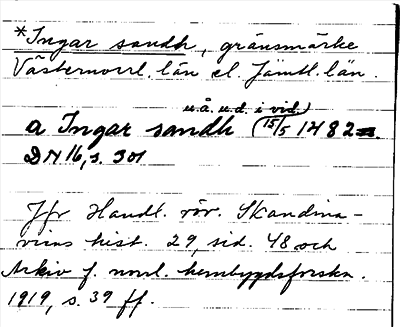 *Ingar sandh, gränsmärke
Västernorrl. län el. Jämtl. län.
u.å. u.d. i vid.)
a Ingar sandh (15/5 1482
DN 16, s. 301
Jfr Handl. rör. Skandina-
viens hist. 29, sid. 48 och
Arkiv f. norrl. hembygdsforskn.
1919, s. 39 ff.